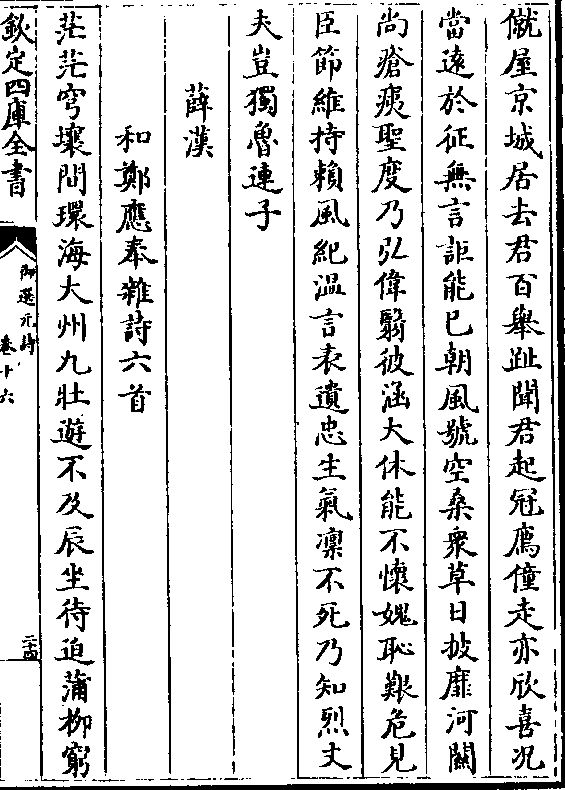 僦屋京城居去君百舉趾聞君起冠廌僮走亦欣喜况
當遠於征無言詎能已朝風號空桑衆草日披靡河關
尚瘡痍聖度乃弘偉翳彼涵大休能不懷媿恥艱危見
臣節維持賴風紀温言表遺忠生氣凜不死乃知烈丈
夫豈獨魯連子
薛漢
和鄭應奉雜詩六首
茫茫穹壤間環海大州九壯遊不及辰坐待迫蒲柳窮
欽定四庫全書
御選元詩
卷十六
二十四